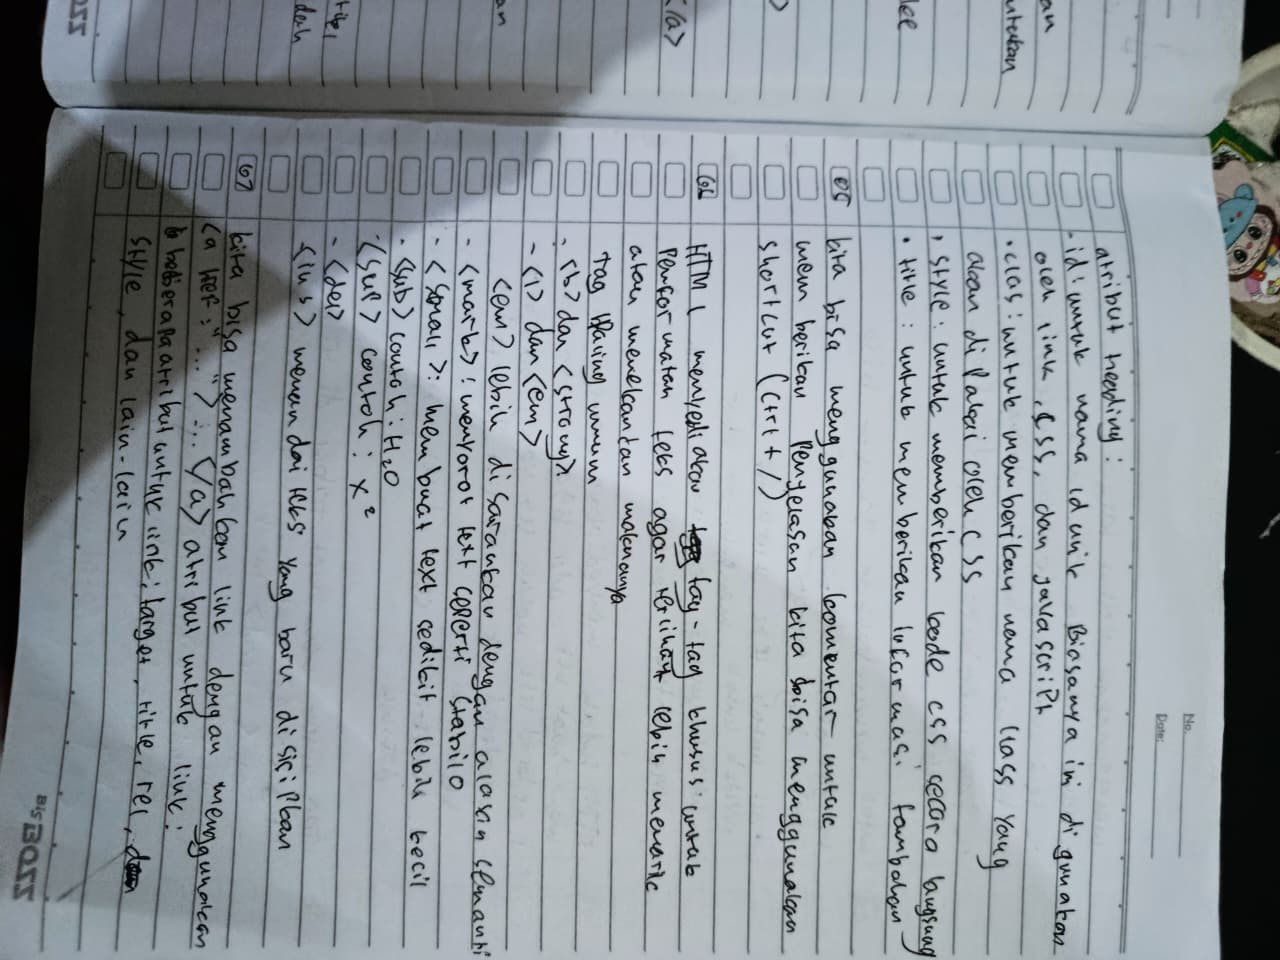 No.
Date:
atribut heading :
- id : untuk nama id unik. Biasanya ini digunakan
oleh link, CSS, dan javascript
• clas : untuk memberikan nama class yang
akan di pakai oleh CSS
• style : untuk memberikan kode css secara langsung
• title : untuk memberikan informasi tambahan
05 kita bisa menggunakan komentar untuk
memberikan penjelasan kita bisa menggunakan
shortcut (Ctrl + /)
06 HTML menyediakan tag-tag khusus untuk
Pemformatan teks agar terlihat lebih menarik
atau menekankan maknanya
Tag paling umum
- <b> dan <strong>
- <i> dan <em>
<em> lebih di sarankan dengan alasan semanti
- <mark> : menyorot text seperti stabilo
- <small> : membuat text sedikit lebih kecil
- <sub> contoh : H₂O
- <sup> contoh : x²
- <del>
- <ins> menandai teks yang baru di sisipkan
07 kita bisa menambahkan link dengan menggunakan
<a href : "...."> .... </a> atribut untuk link :
beberapa atribut untuk link : target, title, rel,
style, dan lain-lain
Bis BOSS
an
untukan
lee
<a>
an
dah